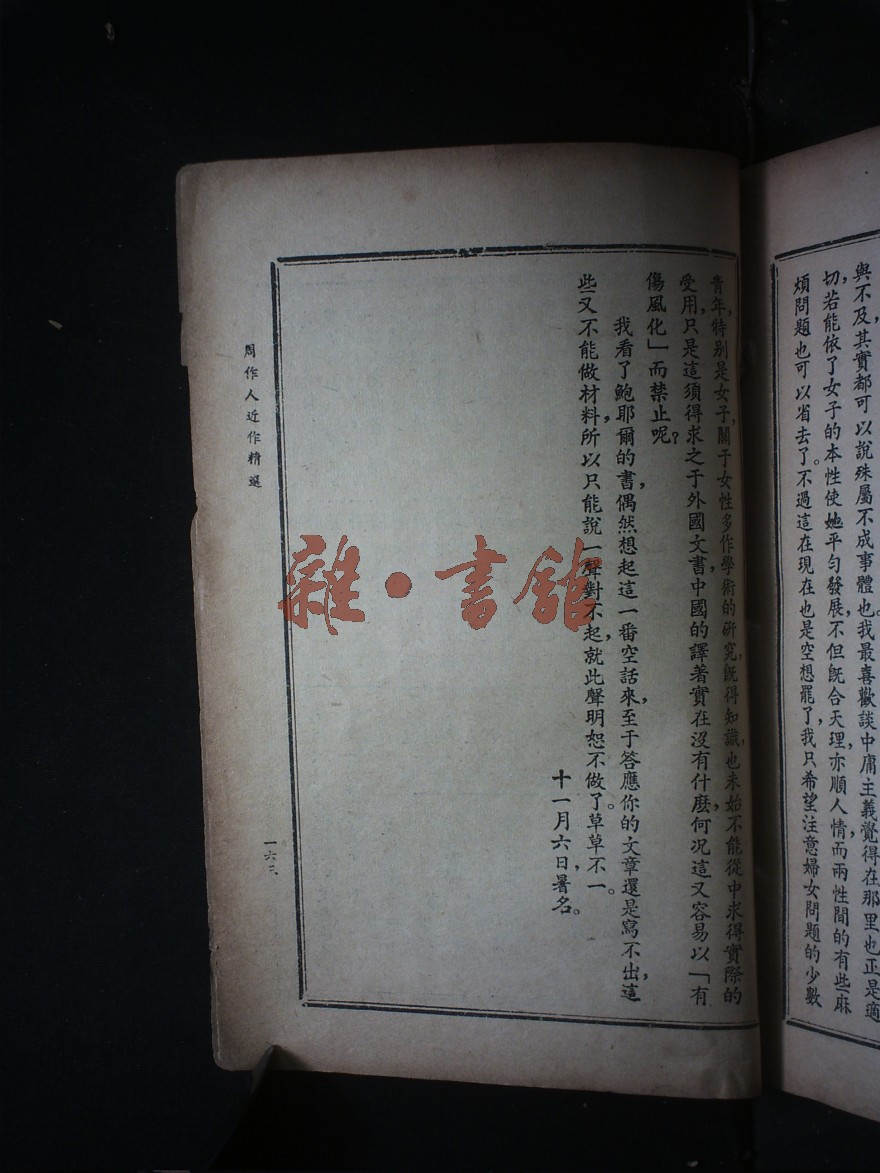 與不及，其實都可以說殊屬不成事體也。我最喜歡談中庸主義，覺得在那里也正是適
切，若能依了女子的本性使她平匀發展，不但既合天理，亦順人情，而兩性間的有些麻
煩問題也可以省去了。不過這在現在也是空想罷了，我只希望注意婦女問題的少數
青年，特别是女子，關于女性多作學術的研究，既得知識，也未始不能從中求得實際的
受用，只是這須得求之于外國文書，中國的譯著實在沒有什麽，何況這又容易以「有
傷風化」而禁止呢？
我看了鮑耶爾的書，偶然想起這一番空話來，至于答應你的文章還是寫不出，這
些又不能做材料，所以只能說一聲對不起，就此聲明恕不做了。草草不一。
十一月六日，署名。
周作人近作精選
一六三
雜·書館